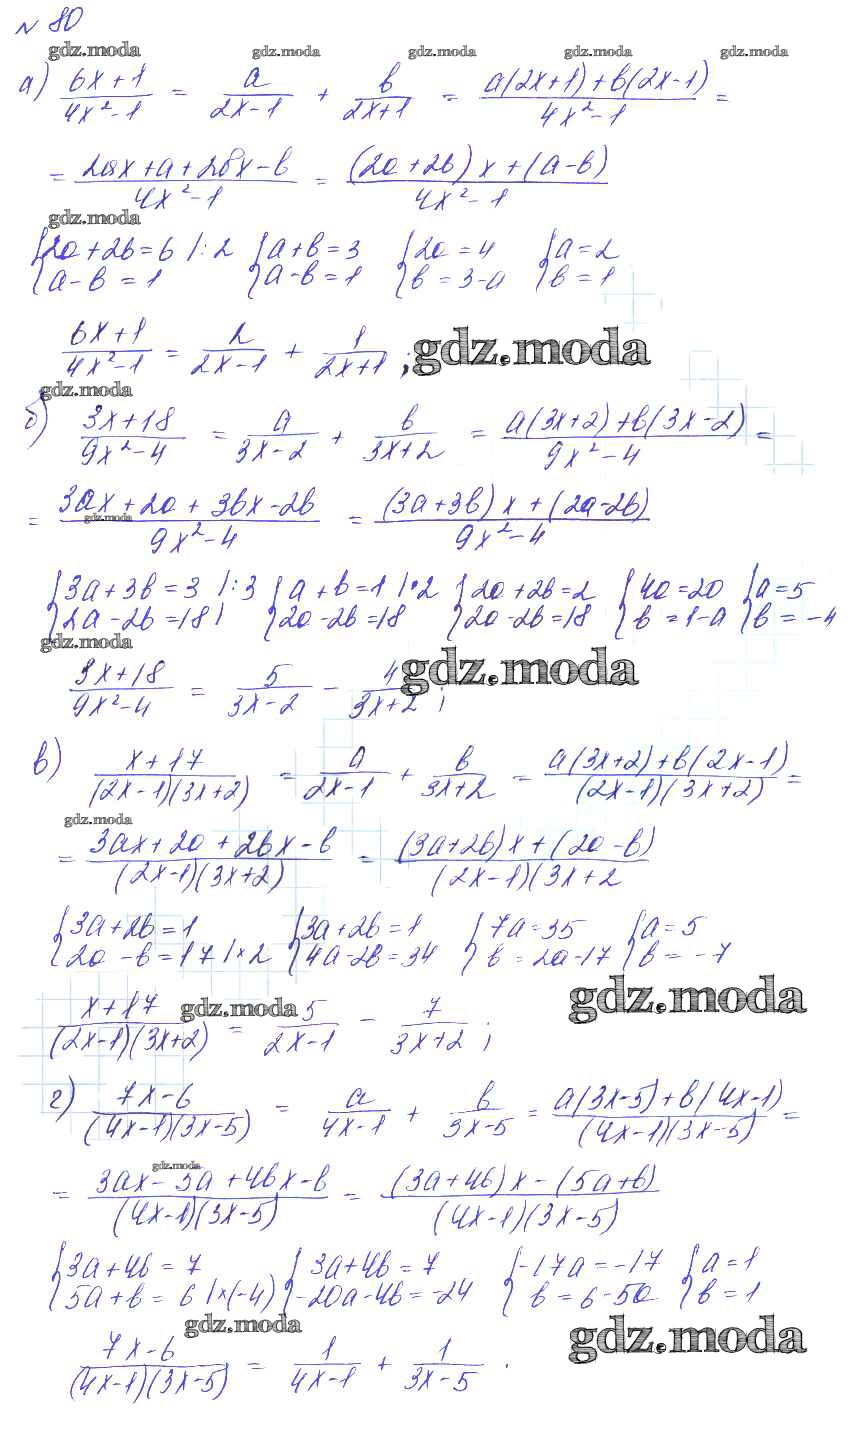 № 80
gdz.moda gdz.moda gdz.moda gdz.moda gdz.moda
а) (6x+1)/(4x²-1) = a/(2x-1) + b/(2x+1) = (a(2x+1)+b(2x-1))/(4x²-1) =
= (2ax+a+2bx-b)/(4x²-1) = ((2a+2b)x+(a-b))/(4x²-1)
gdz.moda
{2a+2b=6 |:2 {a+b=3 {2a=4 {a=2
{a-b=1 {a-b=1 {b=3-a {b=1
(6x+1)/(4x²-1) = 2/(2x-1) + 1/(2x+1); gdz.moda
gdz.moda
б) (3x+18)/(9x²-4) = a/(3x-2) + b/(3x+2) = (a(3x+2)+b(3x-2))/(9x²-4) =
= (3ax+2a+3bx-2b)/(9x²-4) = ((3a+3b)x+(2a-2b))/(9x²-4)
gdz.moda
{3a+3b=3 |:3 {a+b=1 |·2 {2a+2b=2 {4a=20 {a=5
{2a-2b=18 | {2a-2b=18 {2a-2b=18 {b=1-a {b=-4
gdz.moda
(3x+18)/(9x²-4) = 5/(3x-2) - 4/(3x+2); gdz.moda
в) (x+17)/((2x-1)(3x+2)) = a/(2x-1) + b/(3x+2) = (a(3x+2)+b(2x-1))/((2x-1)(3x+2)) =
gdz.moda
= (3ax+2a+2bx-b)/((2x-1)(3x+2)) = ((3a+2b)x+(2a-b))/((2x-1)(3x+2
{3a+2b=1 {3a+2b=1 {7a=35 {a=5
{2a-b=17 |×2 {4a-2b=34 {b=2a-17 {b=-7
(x+17)/((2x-1)(3x+2)) = 5/(2x-1) - 7/(3x+2); gdz.moda gdz.moda
г) (7x-6)/((4x-1)(3x-5)) = a/(4x-1) + b/(3x-5) = (a(3x-5)+b(4x-1))/((4x-1)(3x-5)) =
gdz.moda
= (3ax-5a+4bx-b)/((4x-1)(3x-5)) = ((3a+4b)x-(5a+b))/((4x-1)(3x-5))
{3a+4b=7 {3a+4b=7 {-17a=-17 {a=1
{5a+b=6 |×(-4) {-20a-4b=-24 {b=6-5a {b=1
gdz.moda gdz.moda
(7x-6)/((4x-1)(3x-5)) = 1/(4x-1) + 1/(3x-5).